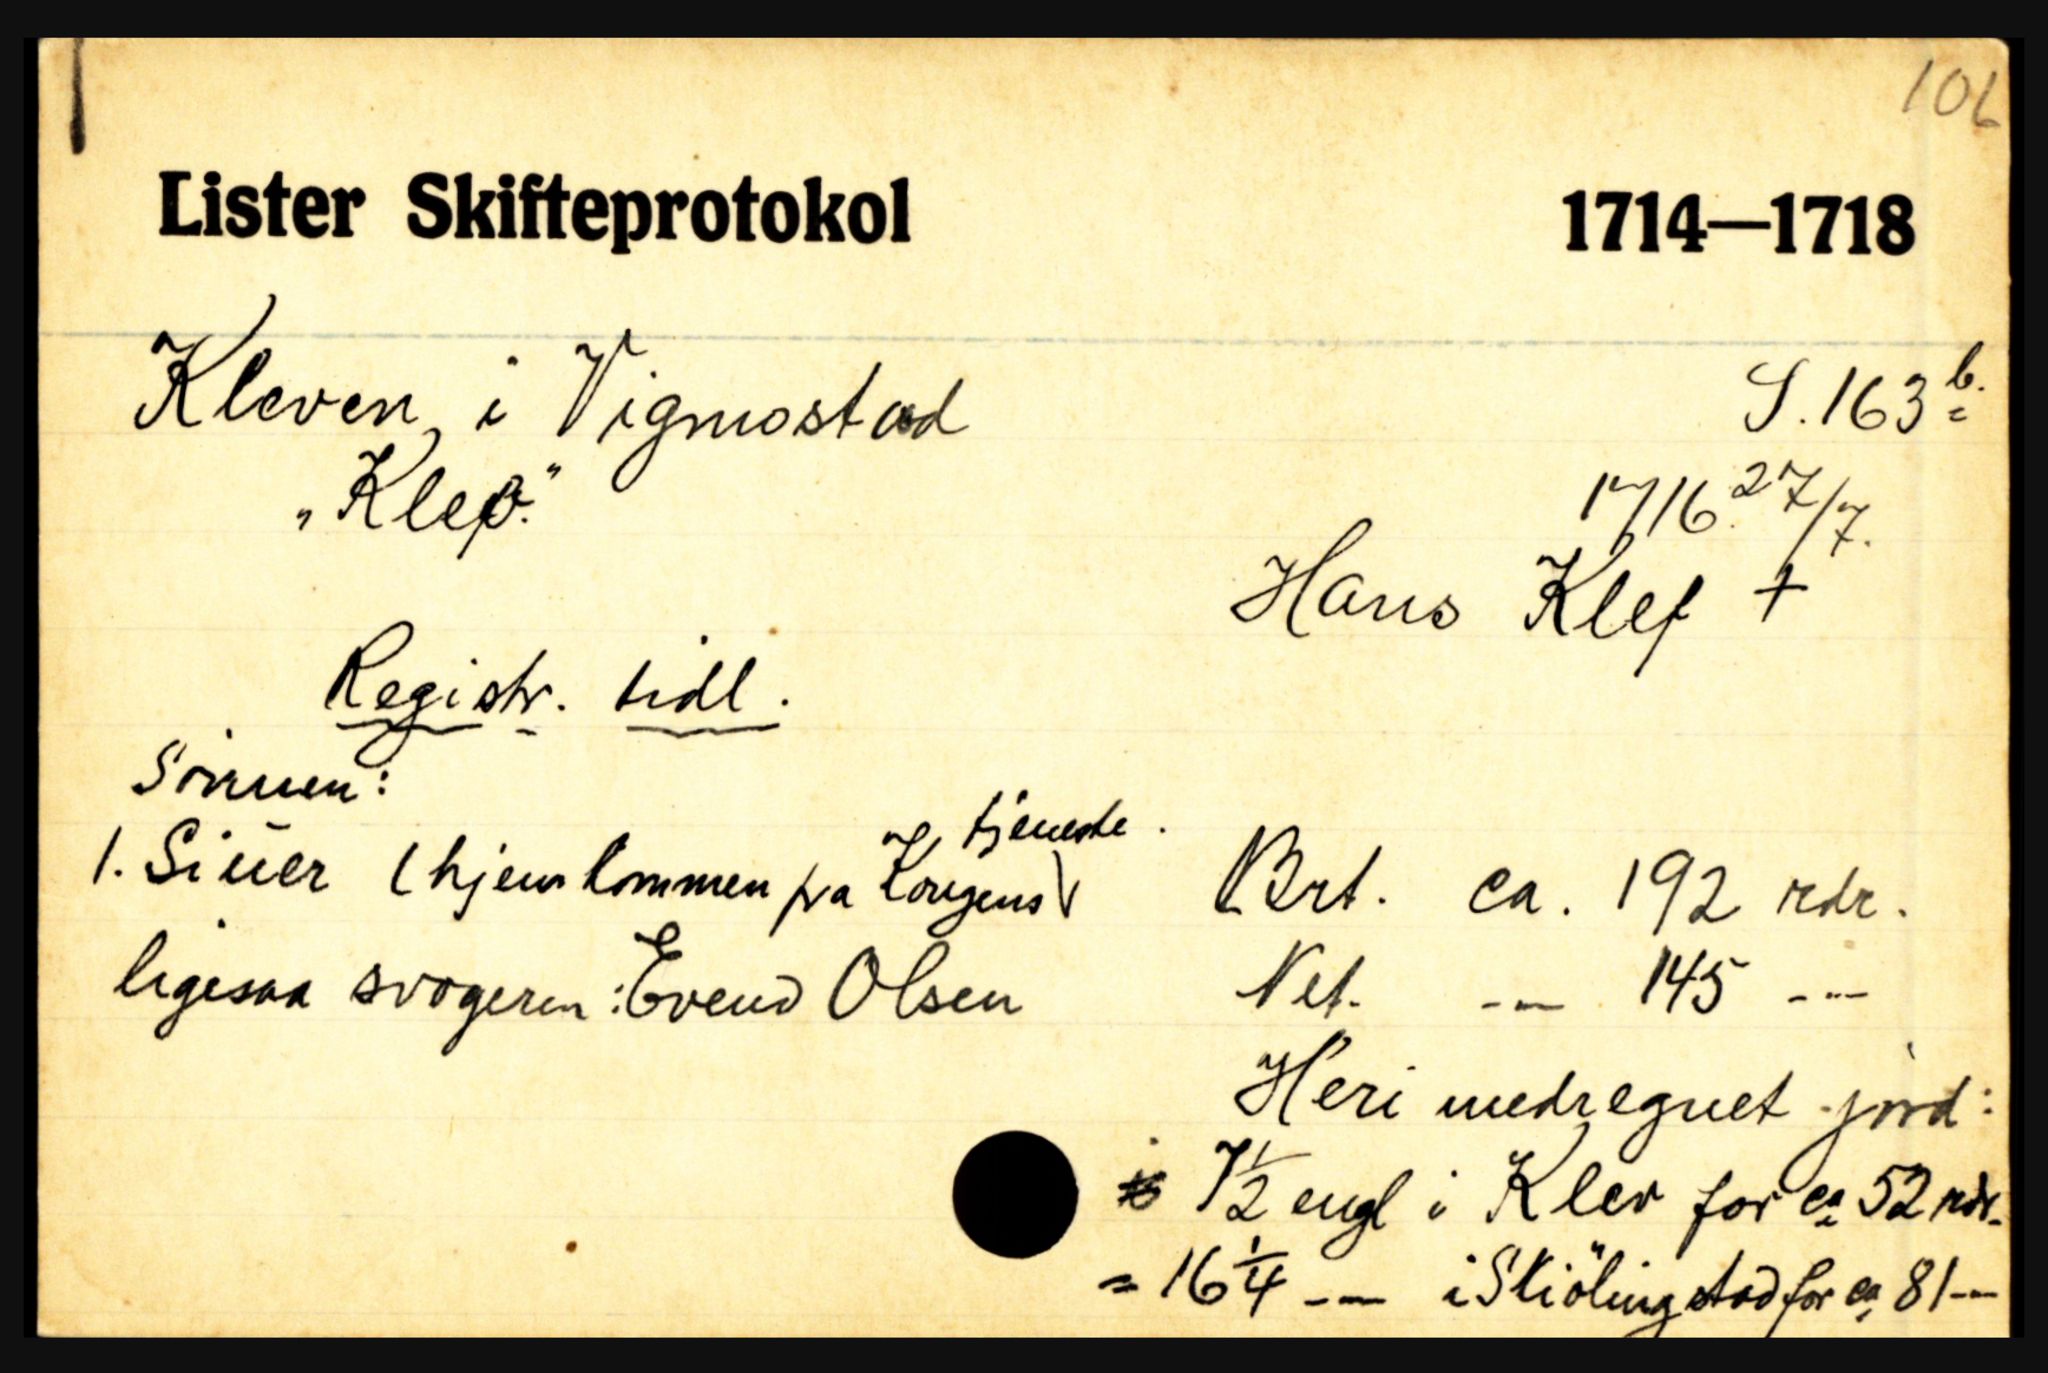 106
Lister Skifteprotokol 1714—1718
Kleven i Vigmostad S. 163 b.
"Klef." 1716. 27/7.
Hans Klef +
Registr. tidl.
Sönnen:
tjeneste.
1. Siuer (hjemkommen fra Kongens Brt. ca. 192 rdr.
ligesaa svogeren: Evend Olsen Net. -- 145 --
Heri medregnet jord:
7 1/2 engl i Klev for ca 52 rdr.
= 16 1/4 -- i Skiölingstad for ca 81 --